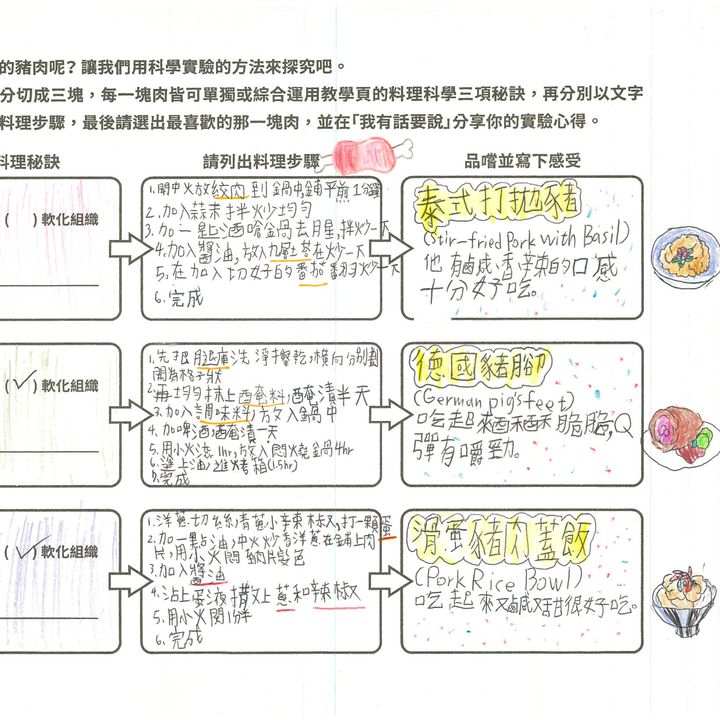 的豬肉呢？讓我們用科學實驗的方法來探究吧。
分切成三塊，每一塊肉皆可單獨或綜合運用教學頁的料理科學三項秘訣，再分別以文字
料理步驟，最後請選出最喜歡的那一塊肉，並在「我有話要說」分享你的實驗心得。
料理秘訣
請列出料理步驟
品嚐並寫下感受
( ) 軟化組織
1.開中火放絞肉到鍋中,鋪平煎1分鐘
2.加入蒜末拌炒均勻
3.加一匙酒嗆鍋去腥,拌炒一下
4.加入醬油,放入九層塔在炒一下
5.在加入切好的番茄翻炒一下
6.完成
泰式打拋豬
(Stir-fried Pork with Basil)
他鹹香辣的口感
十分好吃。
(✓) 軟化組織
1.先把腿庫洗淨擦乾,橫向分別劃
開為格子狀
2.再均勻抹上醃料,醃漬半天
3.加入調味料,放入鍋中
4.加啤酒,醃漬一天
5.用小火滾1hr,放入悶燒鍋4hr
6.塗上油進烤箱(1.5hr)
7.完成
德國豬腳
(German pig's feet)
吃起來酥酥脆脆,Q
彈有嚼勁。
(✓) 軟化組織
1.洋蔥切絲,青蔥小辛辣椒,打一顆蛋
2.加一點油,中火炒香洋蔥在鋪上肉
片,用小火悶 肉片變色
3.加入醬油
4.沾上蛋液撒上蔥和辣椒
5.用小火悶1分鐘
6.完成
滑蛋豬肉蓋飯
(Pork Rice Bowl)
吃起來又鹹又甜很好吃。